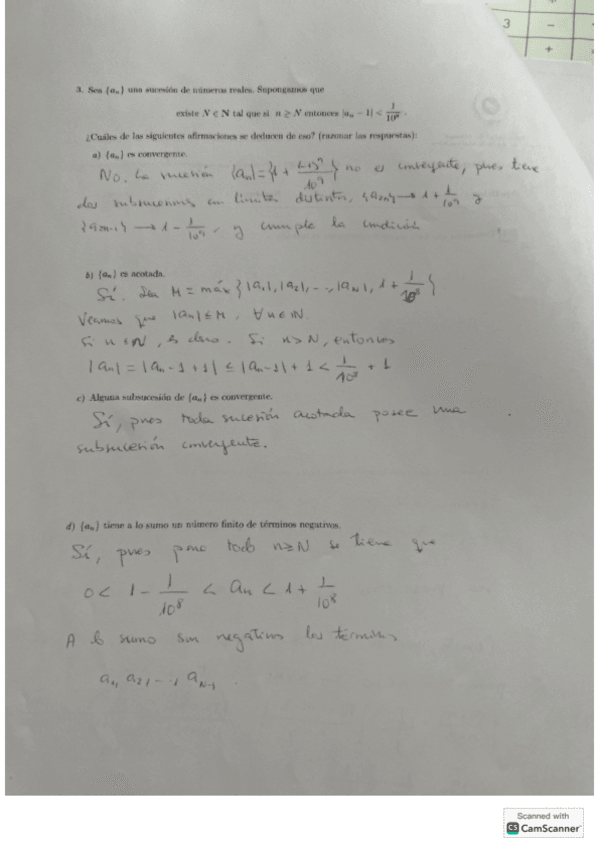 3
-
+
3. Sea {aₙ} una sucesión de números reales. Supongamos que
existe N ∈ N tal que si n ≥ N entonces |aₙ − 1| < 1/10⁸.
¿Cuáles de las siguientes afirmaciones se deducen de eso? (razonar las respuestas):
a) {aₙ} es convergente.
No. La sucesión {aₙ} = {1 + (-1)ⁿ/10⁹} no es convergente, pues tiene
dos subsucesiones con límites distintos, {a₂ₙ} → 1 + 1/10⁹ y
{a₂ₙ₋₁} → 1 − 1/10⁹, y cumple la condición
b) {aₙ} es acotada.
Sí. Sea M = máx {|a₁|, |a₂|, ..., |a_N|, 1 + 1/10⁸}
Veamos que |aₙ| ≤ M, ∀n∈N.
Si n ≤ N, es claro. Si n > N, entonces
|aₙ| = |aₙ - 1 + 1| ≤ |aₙ - 1| + 1 < 1/10⁸ + 1
c) Alguna subsucesión de {aₙ} es convergente.
Sí, pues toda sucesión acotada posee una
subsucesión convergente.
d) {aₙ} tiene a lo sumo un número finito de términos negativos.
Sí, pues para todo n≥N se tiene que
0 < 1 - 1/10⁸ < aₙ < 1 + 1/10⁸
A lo sumo son negativos los términos
a₁, a₂, ..., a_N-1.
Scanned with
CS CamScanner